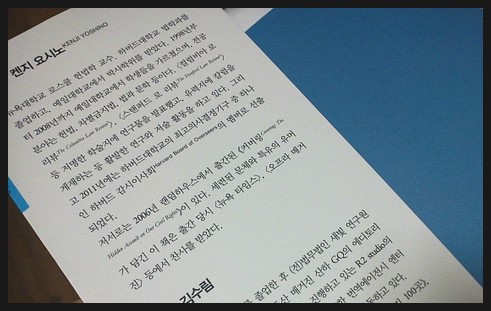 켄지 요시노KENJI YOSHINO
뉴욕대학교 로스쿨 헌법학 교수. 하버드대학교 영문학과를
졸업하고, 예일대학교에서 박사학위를 받았다. 1998년부
터 2008년까지 예일대학교에서 학생들을 가르쳤으며, 전공
분야는 헌법, 차별금지법, 법과 문학 등이다. 《컬럼비아 로
리뷰The Columbia Law Review》, 《스탠퍼드 로 리뷰The Stanford Law Review》
등 저명한 학술지에 연구물을 발표했고, 유력지에 칼럼을
게재하는 등 활발한 연구와 저술 활동을 하고 있다. 그리
고 2011년에는 하버드대학교의 최고의사결정기구 중 하나
인 하버드 감시이사회Harvard Board of Overseers의 멤버로 선출
되었다.
저서로는 2006년 랜덤하우스에서 출간된 《커버링Covering: The
Hidden Assault on Our Civil Rights》이 있다. 세련된 문체와 특유의 유머
가 담긴 이 책은 출간 당시 〈뉴욕 타임스〉, 〈오프라 매거
진〉 등에서 찬사를 받았다.
김수림
졸업한 후 (전)법무법인 새빛 연구원
두산 매거진 산하 GQ의 에디토리
진행하고 있는 R2 studio의
번역에이전시 엔터
동하고 있다.
100곳》,